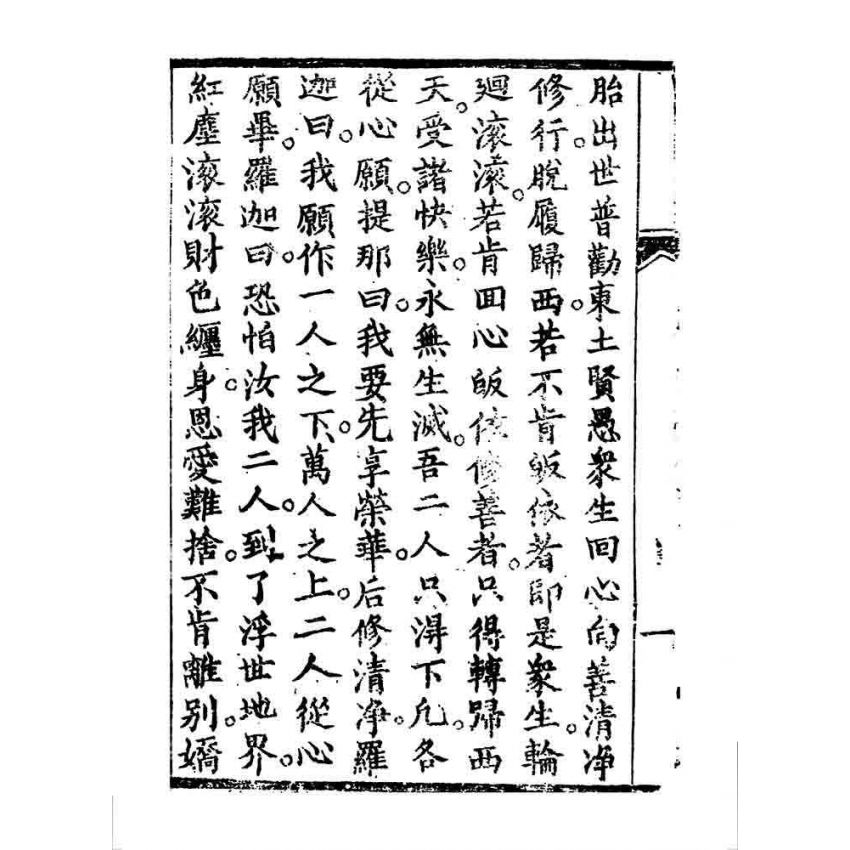 胎出世普勸東土賢愚衆生回心向善清净
修行。脫履歸西。若不肯皈依者。即是衆生輪
廻滚滚。若肯回心皈依修善者。只得轉歸西
天。受諸快樂。永無生滅。吾二人只淂下凢。各
從心願。提那曰。我要先享榮華。后修清净。羅
迦曰。我願作一人之下。萬人之上。二人從心
願畢。羅迦曰。恐怕汝我二人。到了浮世地界。
紅塵滚滚。財色纒身。恩愛難捨。不肯離别。嬌
一